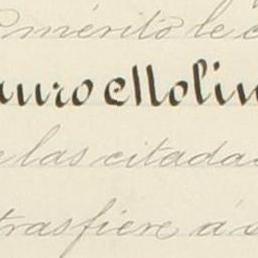 mérito le
auro Molin
las citada
trasfiere á s